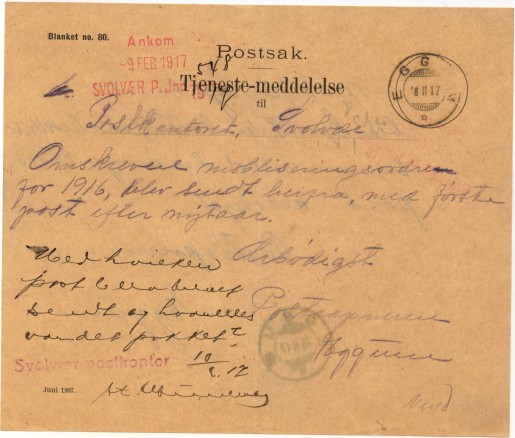 Blanket no. 80.
Ankom
-9 FEB 1917
SVOLVÆR P. Jnr
548
Postsak.
Tjeneste-meddelelse
til
EGGUM
8 II 17
Postkontoret, Svolvær
Omskrevne mobliseringsordren
for 1916, blev sendt herfra, med første
post efter nytaar.
Ærbødigst
Postaapneren
Eggum
Med hvilken
post
sendt og hvorledes
var det pakket?
10/2. 17
Svolvær postkontor
Juni 1907.